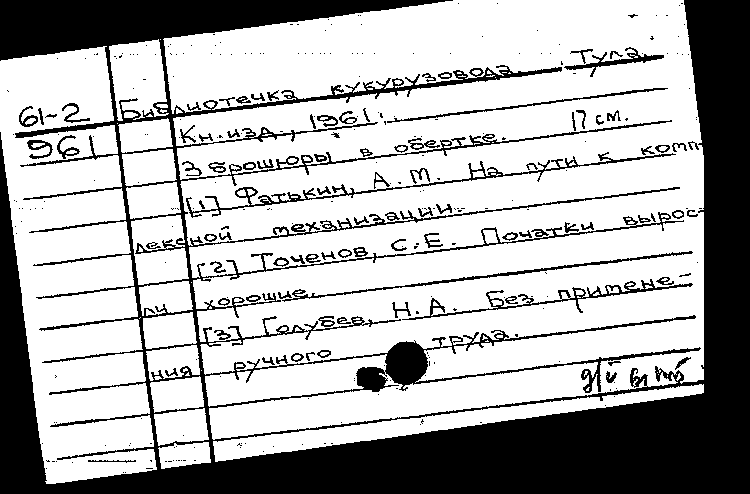 61-2 Библиотечка кукурузовода Тула.
961 Кн.изд., 1961.
3 брошюры в обертке. 17 см.
[1] Фатькин, А.М. На пути к комп
лексной механизации.
[2] Точенов, С.Е. Початки вырос-
ли хорошие.
[3] Голубев, Н.А. Без примене-
ния ручного труда.